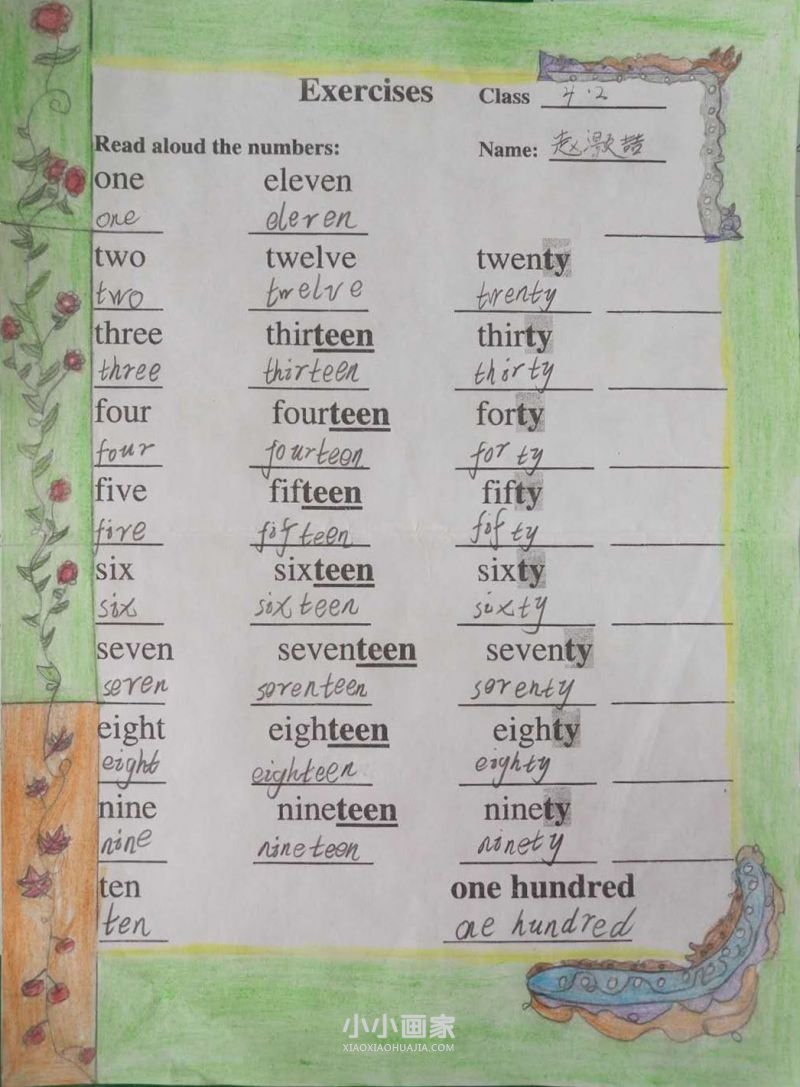 Exercises Class 4.2
Read aloud the numbers: Name: 赵灏喆
one eleven
one eleren
two twelve twenty
two twelve twenty
three thirteen thirty
three thirteen thirty
four fourteen forty
four fourteen forty
five fifteen fifty
five fifteen fifty
six sixteen sixty
six sixteen sixty
seven seventeen seventy
seren serenteen serenty
eight eighteen eighty
eight eighteen eighty
nine nineteen ninety
nine nineteen ninety
ten one hundred
ten one hundred
小小画家
XIAOXIAOHUAJIA.COM